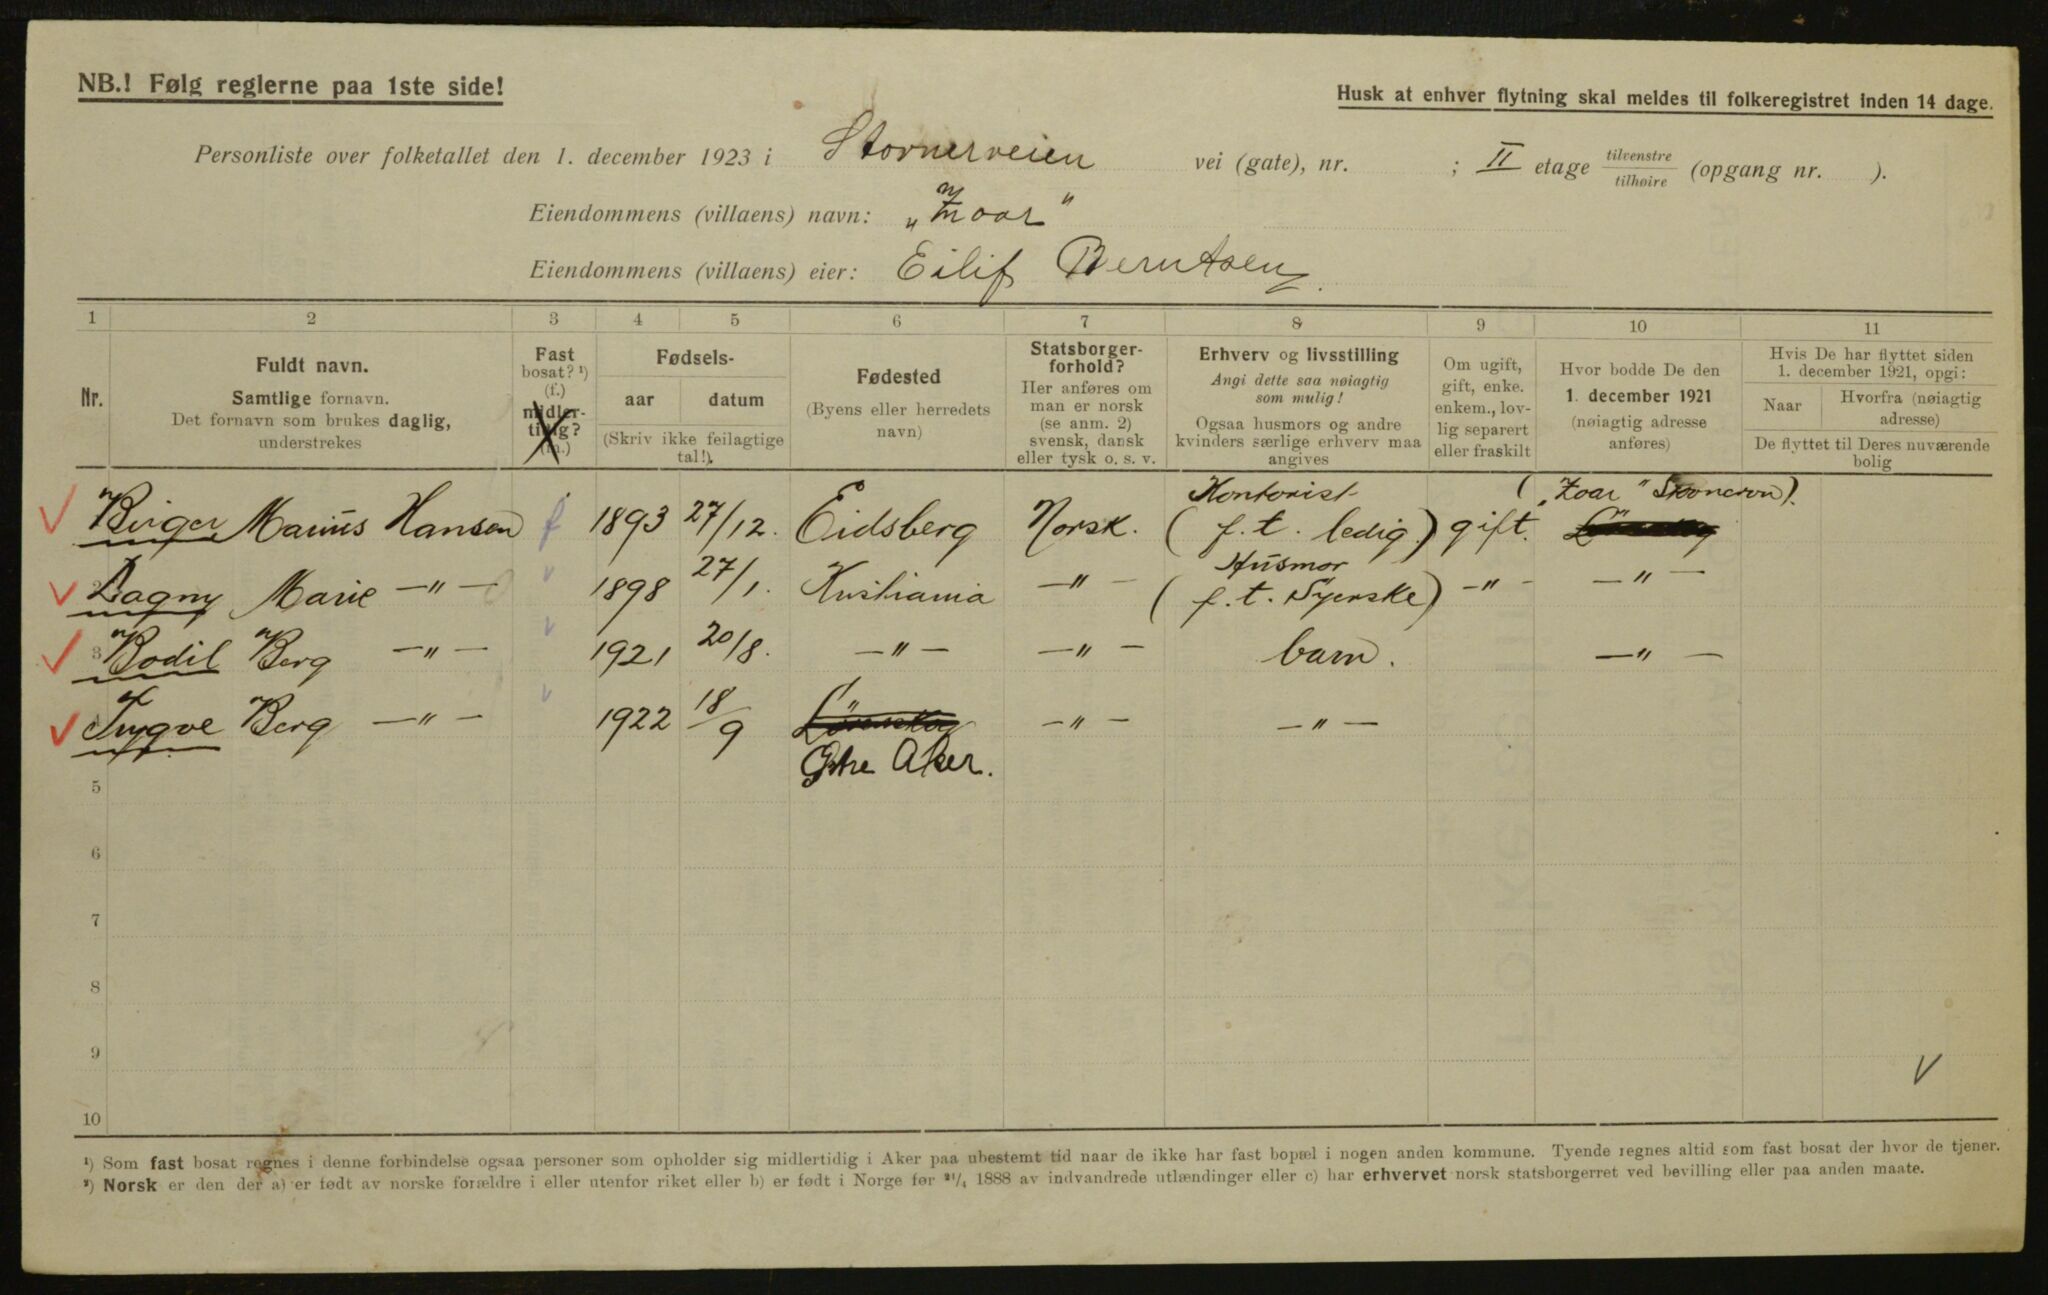 NB.! Følg reglerne paa 1ste side!
Husk at enhver flytning skal meldes til folkeregistret inden 14 dage.
Personliste over folketallet den 1. december 1923 i Stovnerveien vei (gate), nr. ; II etage tilvenstre/tilhøire (opgang nr. ).
Eiendommens (villaens) navn: „Zoar"
Eiendommens (villaens) eier: Eilif Berntsen.
1 2 3 4 5 6 7 8 9 10 11
Nr.
Fuldt navn.
Samtlige fornavn.
Det fornavn som brukes daglig,
understrekes
Fast
bosat? ¹)
(f.)
midler-
tidig?
(m.)
Fødsels-
aar datum
(Skriv ikke feilagtige
tal!).
Fødested
(Byens eller herredets
navn)
Statsborger-
forhold?
Her anføres om
man er norsk
(se anm. 2)
svensk, dansk
eller tysk o. s. v.
Erhverv og livsstilling
Angi dette saa nøiagtig
som mulig!
Ogsaa husmors og andre
kvinders særlige erhverv maa
angives
Om ugift,
gift, enke.
enkem., lov-
lig separert
eller fraskilt
Hvor bodde De den
1. december 1921
(nøiagtig adresse
anføres)
Hvis De har flyttet siden
1. december 1921, opgi:
Naar
Hvorfra (nøiagtig
adresse)
De flyttet til Deres nuværende
bolig
Kontorist („Zoar"
Birger Marius Hansen f 1893 27/12. Eidsberg Norsk. (f. t. ledig.) gift.
Husmor
2 Dagny Marie —"— 1898 27/1. Kristiania —"— (f. t. Syerske) —"— —"—
3 Bodil Berg —"— 1921 20/8. —"— —"— barn. —"—
Trygve Berg —"— 1922 18/9 Lørenskog —"— —"—
Østre Aker.
5
6
7
8
9
10
¹) Som fast bosat regnes i denne forbindelse ogsaa personer som opholder sig midlertidig i Aker paa ubestemt tid naar de ikke har fast bopæl i nogen anden kommune. Tyende regnes altid som fast bosat der hvor de tjener.
²) Norsk er den der a) er født av norske forældre i eller utenfor riket eller b) er født i Norge før ²¹/₄ 1888 av indvandrede utlændinger eller c) har erhvervet norsk statsborgerret ved bevilling eller paa anden maate.